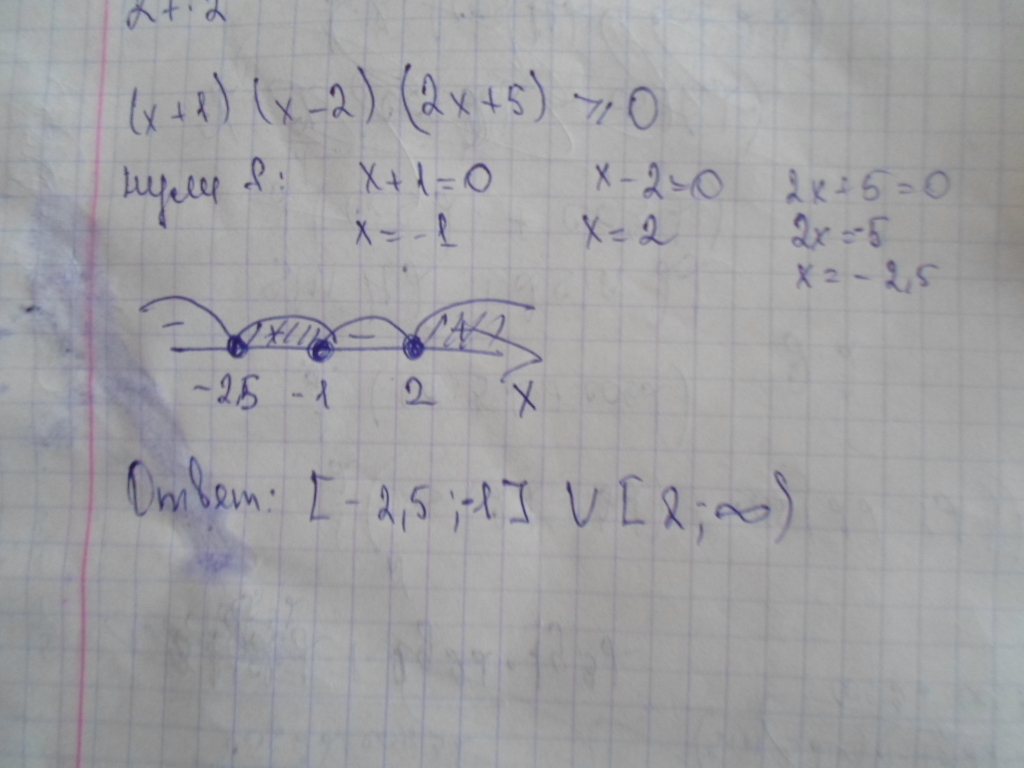 (x+1) (x-2) (2x+5) ≥ 0
нули f: x+1=0 x-2=0 2x+5=0
x=-1 x=2 2x=-5
x=-2,5
- + - +
-2,5 -1 2 x
Ответ: [-2,5;-1] ∪ [2;∞)